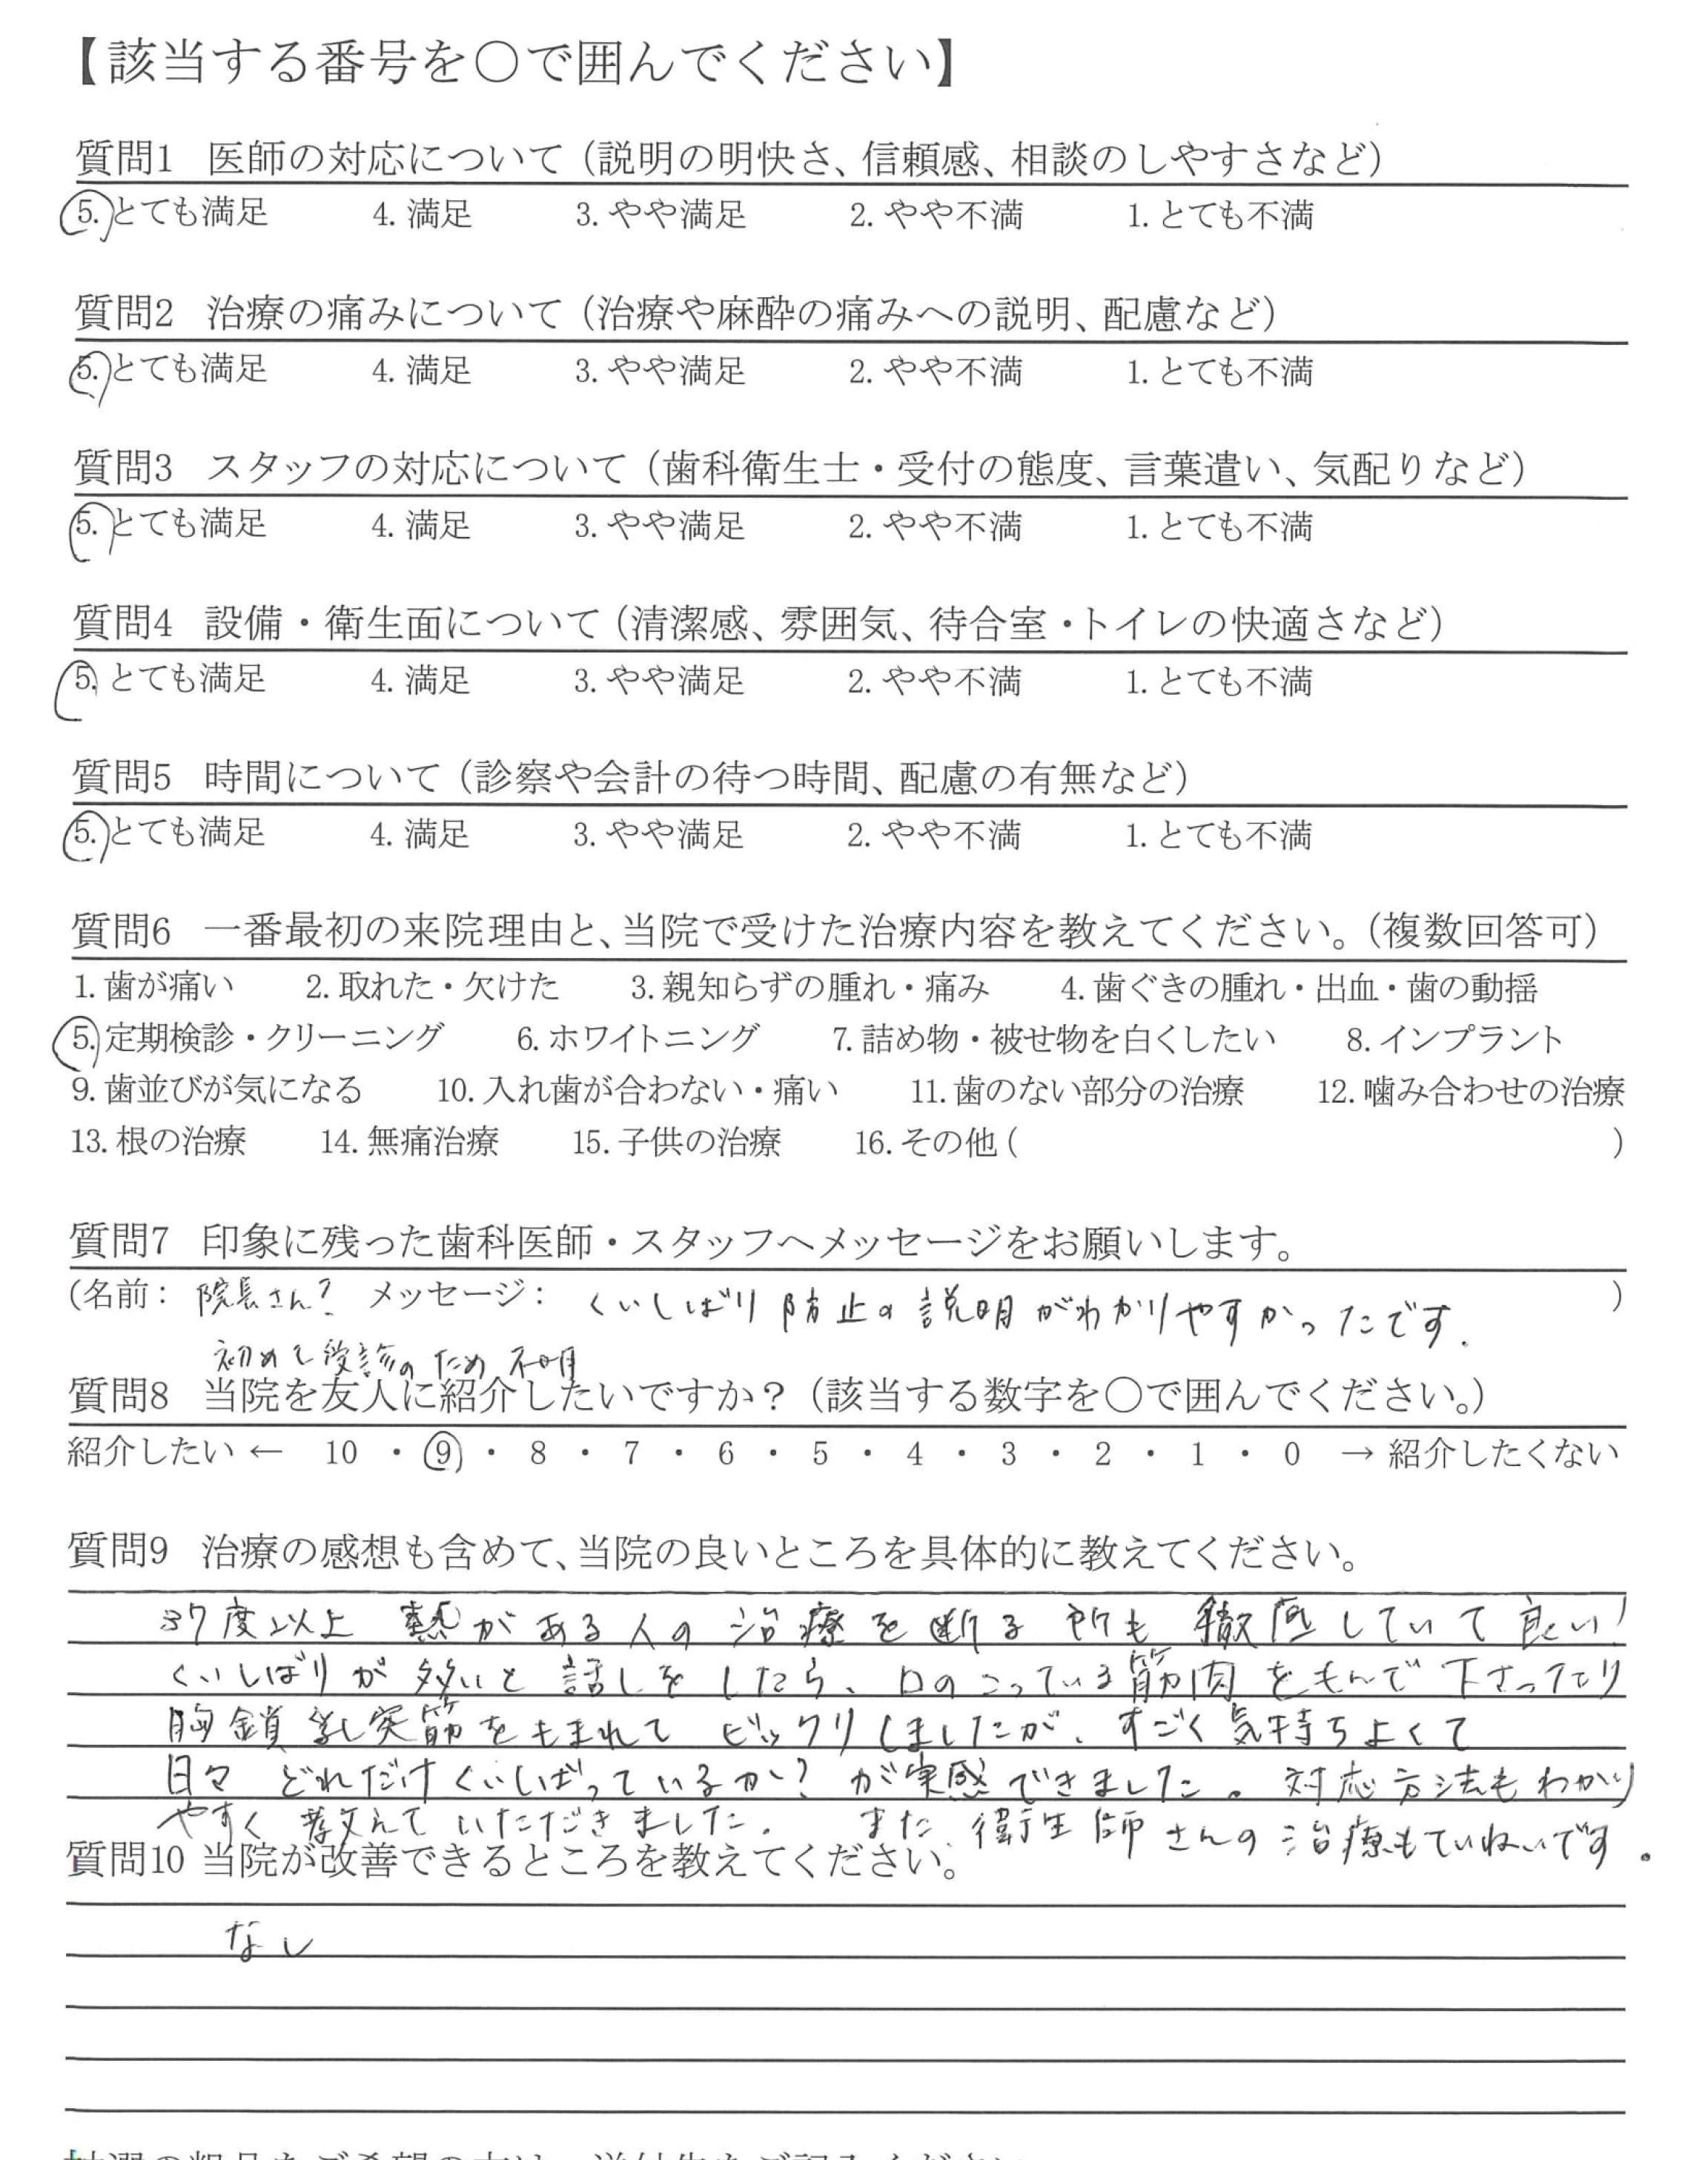 【該当する番号を○で囲んでください】
質問1 医師の対応について（説明の明快さ、信頼感、相談のしやすさなど）
5. とても満足 4. 満足 3. やや満足 2. やや不満 1. とても不満
質問2 治療の痛みについて（治療や麻酔の痛みへの説明、配慮など）
5. とても満足 4. 満足 3. やや満足 2. やや不満 1. とても不満
質問3 スタッフの対応について（歯科衛生士・受付の態度、言葉遣い、気配りなど）
5. とても満足 4. 満足 3. やや満足 2. やや不満 1. とても不満
質問4 設備・衛生面について（清潔感、雰囲気、待合室・トイレの快適さなど）
5. とても満足 4. 満足 3. やや満足 2. やや不満 1. とても不満
質問5 時間について（診察や会計の待つ時間、配慮の有無など）
5. とても満足 4. 満足 3. やや満足 2. やや不満 1. とても不満
質問6 一番最初の来院理由と、当院で受けた治療内容を教えてください。（複数回答可）
1. 歯が痛い 2. 取れた・欠けた 3. 親知らずの腫れ・痛み 4. 歯ぐきの腫れ・出血・歯の動揺
5. 定期検診・クリーニング 6. ホワイトニング 7. 詰め物・被せ物を白くしたい 8. インプラント
9. 歯並びが気になる 10. 入れ歯が合わない・痛い 11. 歯のない部分の治療 12. 噛み合わせの治療
13. 根の治療 14. 無痛治療 15. 子供の治療 16. その他（ ）
質問7 印象に残った歯科医師・スタッフへメッセージをお願いします。
（名前： 院長さん？ メッセージ： くいしばり防止の説明がわかりやすかったです. ）
初めて受診のため 不明
質問8 当院を友人に紹介したいですか？（該当する数字を○で囲んでください。）
紹介したい ← 10 ・ 9 ・ 8 ・ 7 ・ 6 ・ 5 ・ 4 ・ 3 ・ 2 ・ 1 ・ 0 → 紹介したくない
質問9 治療の感想も含めて、当院の良いところを具体的に教えてください。
37度以上 熱がある人の治療を断る所も徹底していて良い！
くいしばりが多いと話しをしたら、口のこっている筋肉をもんで下さったり
胸鎖乳突筋をもまれてビックリしましたが、すごく気持ちよくて
日々 どれだけくいしばっているか？が実感できました。対応方法もわかり
やすく教えていただきました. また、衛生師さんの治療もていねいです。
質問10 当院が改善できるところを教えてください。
なし